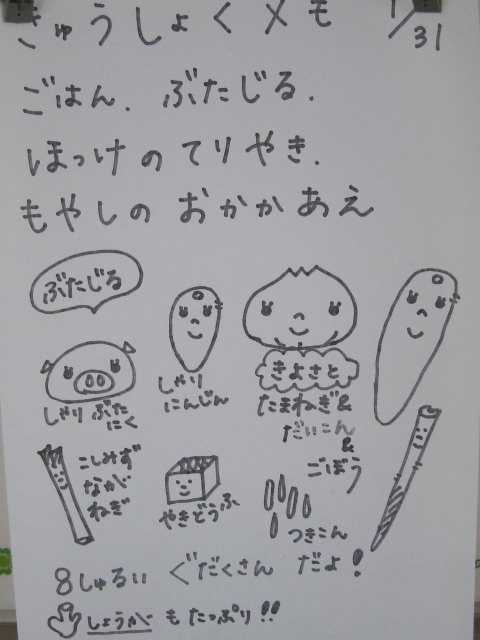 きゅうしょくメモ 1/31
ごはん. ぶたじる.
ほっけのてりやき.
もやしの おかかあえ
ぶたじる
しゃり ぶたにく
しゃり
にんじん
きよさと
たまねぎ&
だいこん
&
ごぼう
こしみず
ながねぎ
やきどうふ
つきこん
8しゅるい ぐだくさん だよ!
しょうがもたっぷり!!